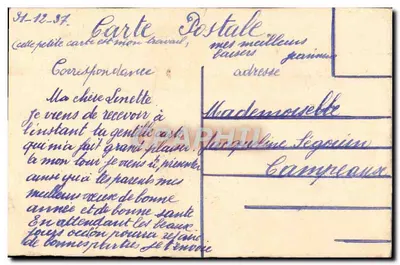 31-12-37.
Carte Postale
(cette petite carte est mon travail,
mes meilleurs
baisers
Jeannine
Correspondance
adresse
Ma chere Linette
je viens de recevoir à
l'instant ta gentille carte
qui m'a fait grand plaisir
a mon tour je viens te presenter
ainsi qu'à tes parents mes
meilleurs vœux de bonne
année et de bonne santé
En attendant les beaux
jours ou on pourra refaire
de bonnes parties je t'envoie
Mademoiselle
Jacqueline
Campeaux